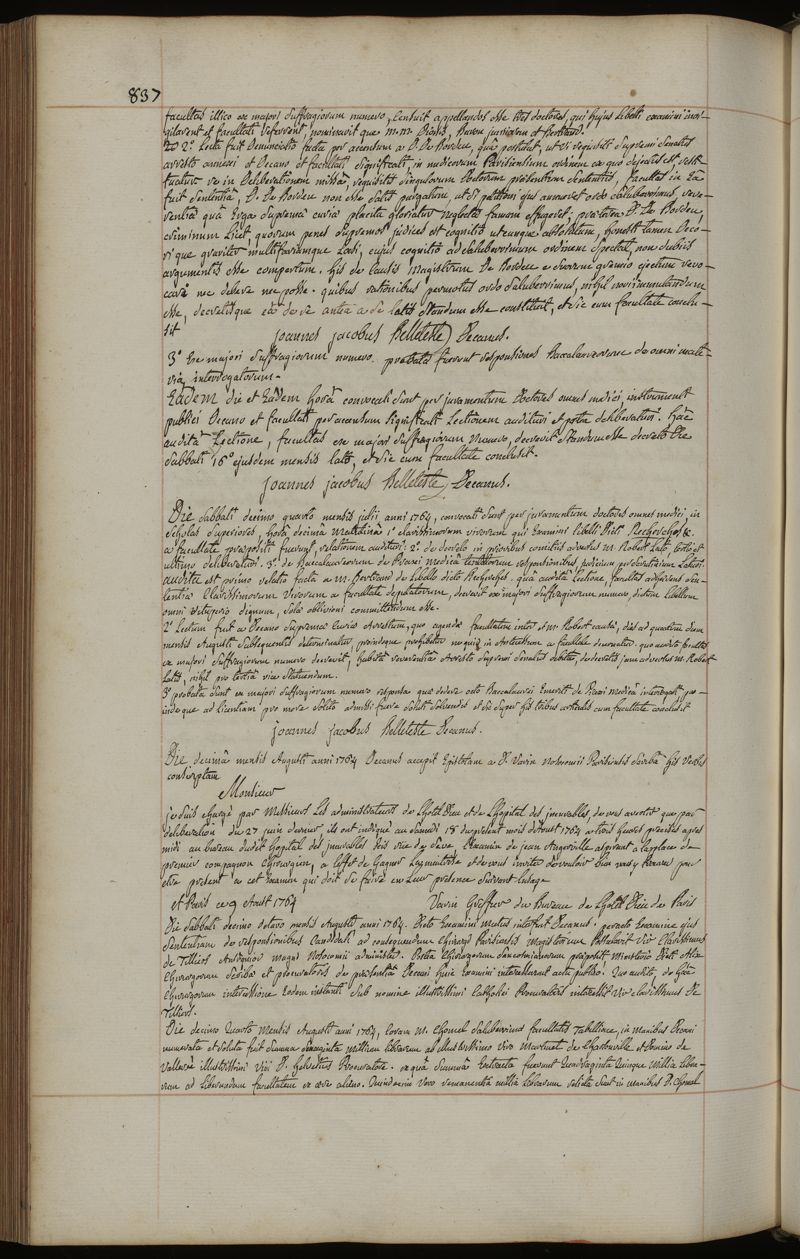 837
facultas illico ex majori suffragiorum numero, censuit appellandos esse tres doctores, qui hujus libelli examini invi-
gilarent et facultati referrent, nominavit que M.M. Dienis, Baron juniorem et Bertrand.
2° Lecta fuit Denunciatio facta per accensum a D. De Bordeu, quâ postulat, ut vi requisiti supremi senatus
arresto annexi et Decano et facultati significati, in medicorum Parisiensium ordinem ex quo dejectus est, resti-
tuatur re in Deliberationem missâ, requisitis singulorum Doctorum præsentium sententiis, facultas in eâ
fuit sententiâ, D. De Bordeu non esse satis purgatum, ut si petitioni ejus annueret ordo saluberrimus, reve-
rentiâ quâ erga suprema curiæ placita gloriatur neglectæ famam effugeret; præterea D. De Bordeu,
criminum licet quorum penes supremos judices est cognitio utcunque absolutum, honesti tamen deco-
ri que graviter multifariamque læsi, cujus cognitio ad saluberrimum ordinem spectat, non dubiis
argumentis esse compertum. his de causis Magistrum De Bordeu e suorum gremio ejectum revo-
care nec debere nec posse. quibus rationibus permotus ordo saluberrimus, nihil novi immutandum
esse, decretisque eâ de re antea a se latis standum esse constituit, et sic cum facultate conclu-
sit
Joannes jacobus Belleteste Decanus.
3° Ex majori suffragiorum numero probatæ fuerunt responsiones Baccalaureorum de omni mate-
riâ interrogatorum.
Eâdem die et eâdem horâ convocati sunt per juramentum Doctores omnes medici, instrumenti
publici Decano et facultati per accensum significati Lectionem audituri et postea deliberaturi. hâc
auditâ Lectione, facultas ex majori suffragiorum numero, decrevit standum esse decreto Die
Sabbati 16° ejusdem mensis lato, et sic cum facultate conclusit.
Joannes jacobus Belleteste, Decanus.
Die Sabbati decimo quarto mensis julii anni 1764, convocati sunt per juramentum doctores omnes medici, in
scholas superiores, horâ decimâ matutinâ 1° clarissimorum virorum qui Examini Libelli dicti Recherches &c.
a facultate præpositi fuerunt, relationem audituri: 2° de decreto in prioribus comitiis adversus M. Robert lato, tertio et
ultimo deliberaturi. 3° de Baccalaureorum de Praxi medicâ tentatorum responsionibus judicium per decretum Laturi.
audita est primo relatio facta a M. Bertrand de Libello dicto Recherches. quâ auditâ lectione, facultas adhærens sen-
tentiæ clarissimorum virorum a facultate deputatorum, decrevit ex majori suffragiorum numero, dictum libellum
omni vituperio dignum, solâ oblivioni committendum esse.
2° Lectum fuit a Decano supremæ curiæ Arrestum, quo agendæ facultatem inter et M. Robert causæ, dies ad quartum diem
mensis Augusti subsequentis determinatur, proindeque prohibetur ne quis in Antecessum a facultate decernatur. quo audito facultas
ex majori suffragiorum numero decrevit, habitâ reverentiâ Arresto supremi senatus debitâ, de decretis jam adversus M. Robert
latis, nihil pro tertiâ vice statuendum.
3° probata sunt ex majori suffragiorum numero responsa quæ dedere octo Baccalaurei Emeriti de Praxi medicâ interrogati, pro-
indeque ad licentiam pro more solito admissi fuere solitis solvendis et sic super his tribus articulis cum facultate conclusit
Joannes Jacobus Belleteste Decanus.
Die decimâ mensis Augusti anni 1764 Decanus accepit Epistolam a D. Varin Nosocomii Parisiensis scribâ his verbis
conscriptam
Monsieur
je suis chargé par Messieurs Les administrateurs de Lhotel Dieu et de Lhopital des incurables, de vous avertir que par
deliberation du 27 juin dernier, ils ont indiqué au samedi 18 du present mois d'Aoust 1764 a trois heures precises apres
midi au bureau dudit hopital des incurables scis rue de seve, L'examen de jean Angerville aspirant a la place de
premier compagnon chirurgien, a L'effet de Gagner La maitrise et de vous inviter de vouloir bien vous y trouver pour
etre present a cet Examen qui doit se faire en Leur presence suivant L'usage
et Paris ce 9 Aoust 1764 Varin Greffier du Bureau de Lhotel Dieu de Paris
Die sabbati decimo octavo mensis Augusti anni 1764. Dicto Examini mutus interfuit Decanus. peracto Examine ejus
sententiam de responsionibus Candidati ad consequendum Chirurgi Parisiensis Magisterium Postulavit Vir Clarissimus
De Tilliere Antiquior magni Nosocomii administer. Postea Chirurgorum duo
Chirurgorum scribæ et procuratoris de præsentiâ Decani huic Examini intercesserunt actu publico. Quo audito, de hâc
Chirurgorum intercessione Eodem instanti sub nomine illustrissimi Catholici Procuratoris intercessit Vir Clarissimus De
Tilliere.
Die decimo Quarto Mensis Augusti anni 1764, coram M. Chomel saluberrimæ facultatis Tabellione, in manibus Decani
numerata et soluta fuit summa sexaginta millium librarum ab illustrissimo viro Marchione de Chasteuville et Domino de
Vallerie illustrissimi Viri D. Helvetius Procuratore. ex quâ summâ Extracta fuerunt Quadraginta Quinque Millia Libra-
rum ad liberandam facultatem ex ære alieno. Quindecim vero remanentia millia Librarum relicta sunt in manibus D. Chomel